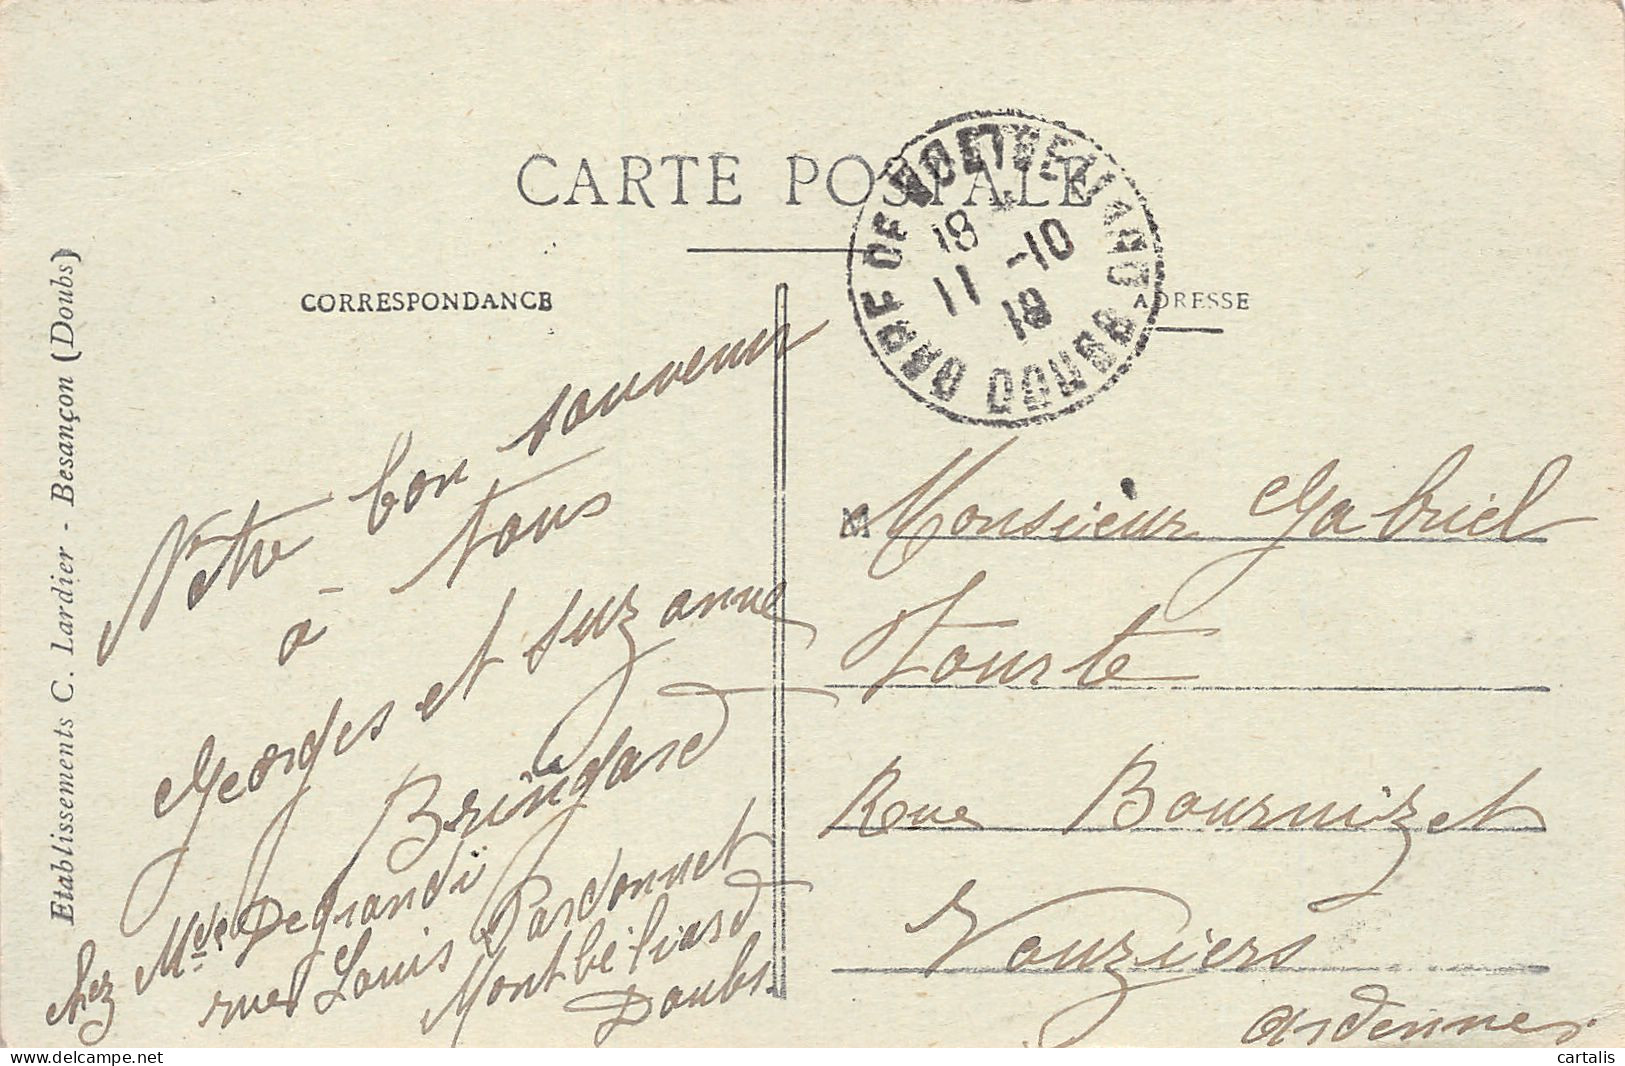 CARTE POSTALE
GARE DE MONTBELIARD DOUBS
18
11 -10
19
CORRESPONDANCE
ADRESSE
Etablissements C. Lardier - Besançon (Doubs)
Notre bon souvenir
à tous
Georges et Suzanne
Bringard
chez Mde Degrandi
rue Louis Pardonnet
Montbéliard
Doubs.
M Monsieur Gabriel
Tourte
Rue Bournizet
Vouziers
Ardennes.
www.delcampe.net
cartalis